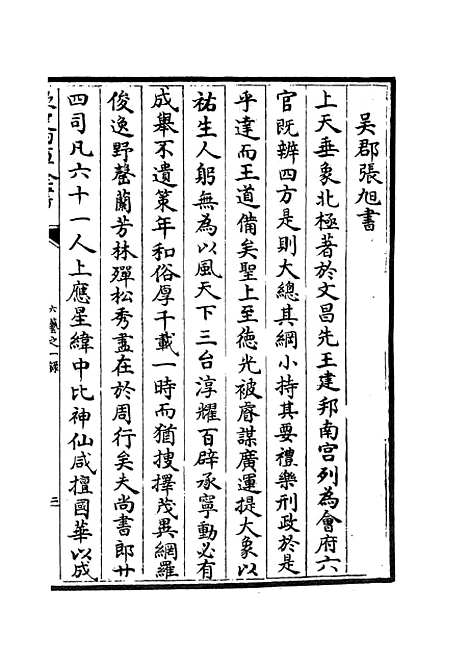 吴郡張旭書
上天垂象北極著於文昌先王建邦南宫列為會府六
官既辨四方是則大總其綱小持其要禮樂刑政於是
乎達而王道備矣聖上至徳光被睿謀廣運提大象以
祐生人躬無為以風天下三台淳耀百辟承寧動必有
成舉不遺策年和俗厚千載一時而猶搜擇茂異網羅
俊逸野罄蘭芳林殫松秀盡在於周行矣夫尚書郎廿
四司凡六十一人上應星緯中比神仙咸擅國華以成
六藝之一録
三